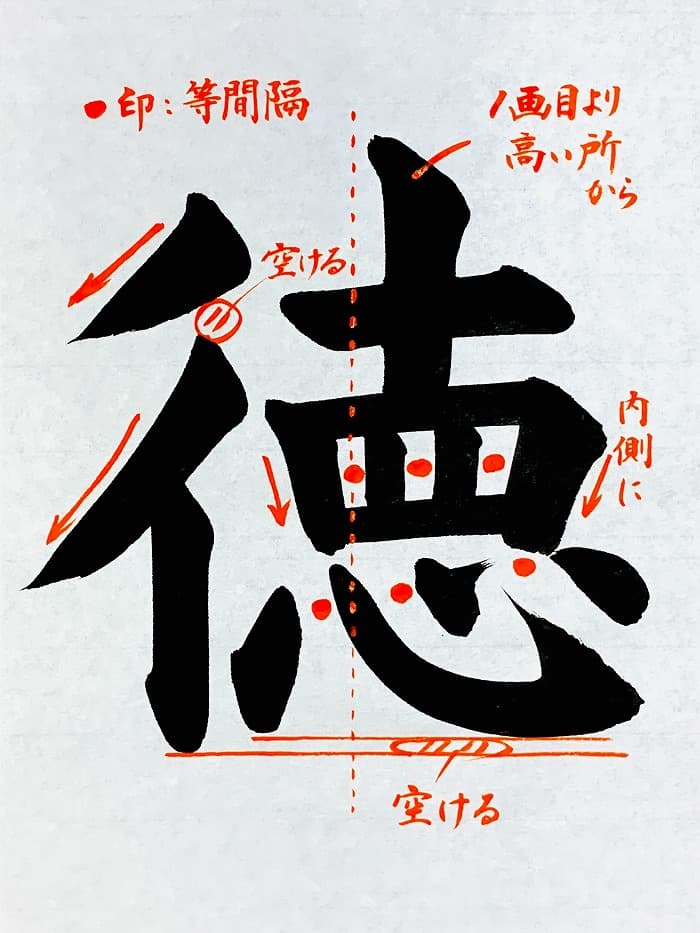 ●印:等間隔
1画目より
高い所
から
空ける
徳
内側に
空ける